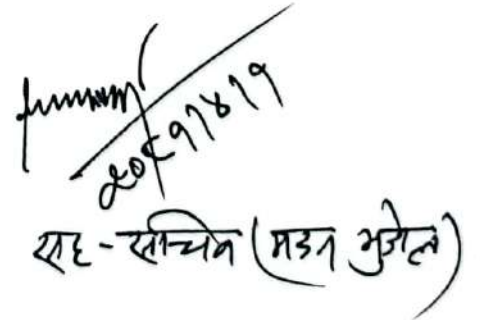 २०८१।४।१
सह-सचिव (मदन भुजेल)